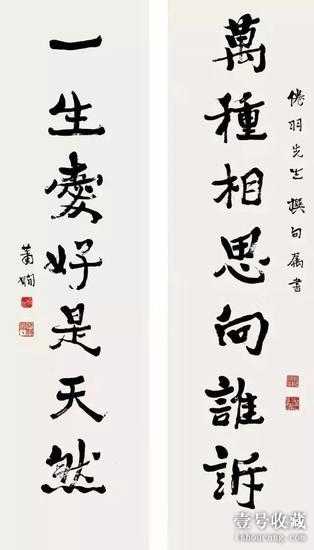 倦羽先生 撰句屬書
萬種相思向誰訴
一生愛好是天然
蕭嫻
壹号收藏
1shoucang.com